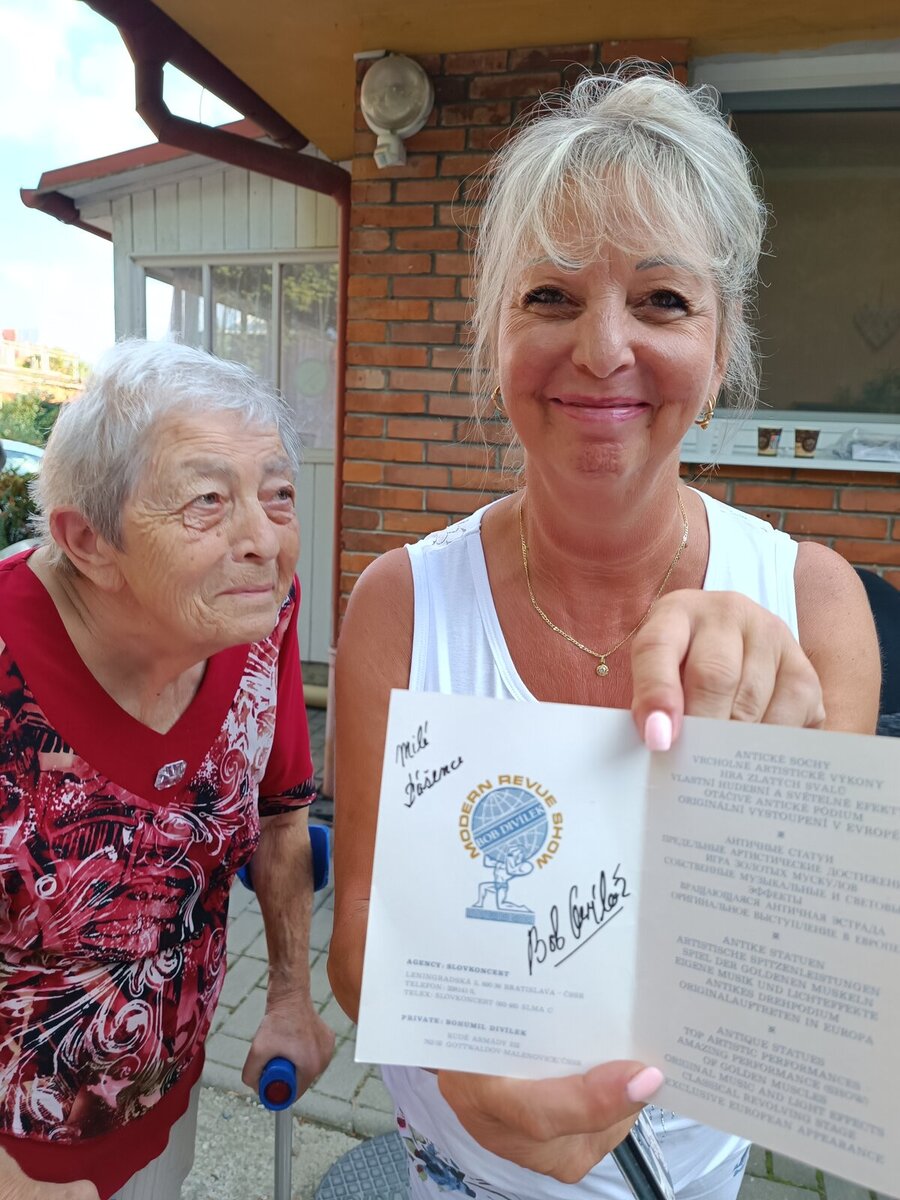 Milé
Dášence
MODERN REVUE SHOW
BOB DIVÍLEK
Bob Divílek
AGENCY: SLOVKONCERT
LENINGRADSKÁ 5, BRATISLAVA – ČSSR
TELEFON:
TELEX: SLOVKONCERT SLMA C
PRIVATE: BOHUMIL DIVÍLEK
RUDÉ ARMÁDY
GOTTWALDOV-MALENOVICE/ČSSR
ANTICKÉ SOCHY
VRCHOLNÉ ARTISTICKÉ VÝKONY
HRA ZLATÝCH SVALŮ
VLASTNÍ HUDEBNÍ A SVĚTELNÉ EFEKTY
OTÁČIVÉ ANTICKÉ PODIUM
ORIGINÁLNÍ VYSTOUPENÍ V EVROPĚ
АНТИЧНЫЕ СТАТУИ
ПРЕДЕЛЬНЫЕ АРТИСТИЧЕСКИЕ ДОСТИЖЕНИ
ИГРА ЗОЛОТЫХ МУСКУЛОВ
СОБСТВЕННЫЕ МУЗЫКАЛЬНЫЕ И СВЕТОВЫЕ
ЭФФЕКТЫ
ВРАЩАЮЩАЯСЯ АНТИЧНАЯ ЭСТРАДА
ОРИГИНАЛЬНОЕ ВЫСТУПЛЕНИЕ В ЕВРОПЕ
ANTIKE STATUEN
ARTISTISCHE SPITZENLEISTUNGEN
SPIEL DER GOLDENEN MUSKELN
EIGENE MUSIK UND LICHTEFFEKTE
ANTIKES DREHPODIUM
ORIGINALAUFTRETEN IN EUROPA
ANTIQUE STATUES
TOP ARTISTIC PERFORMANCES
AMAZING PERFORMANCE SHOW
OF GOLDEN MUSCLES
ORIGINAL MUSIC AND LIGHT EFFECTS
CLASSICAL REVOLVING STAGE
EXCLUSIVE EUROPEAN APPEARANCE